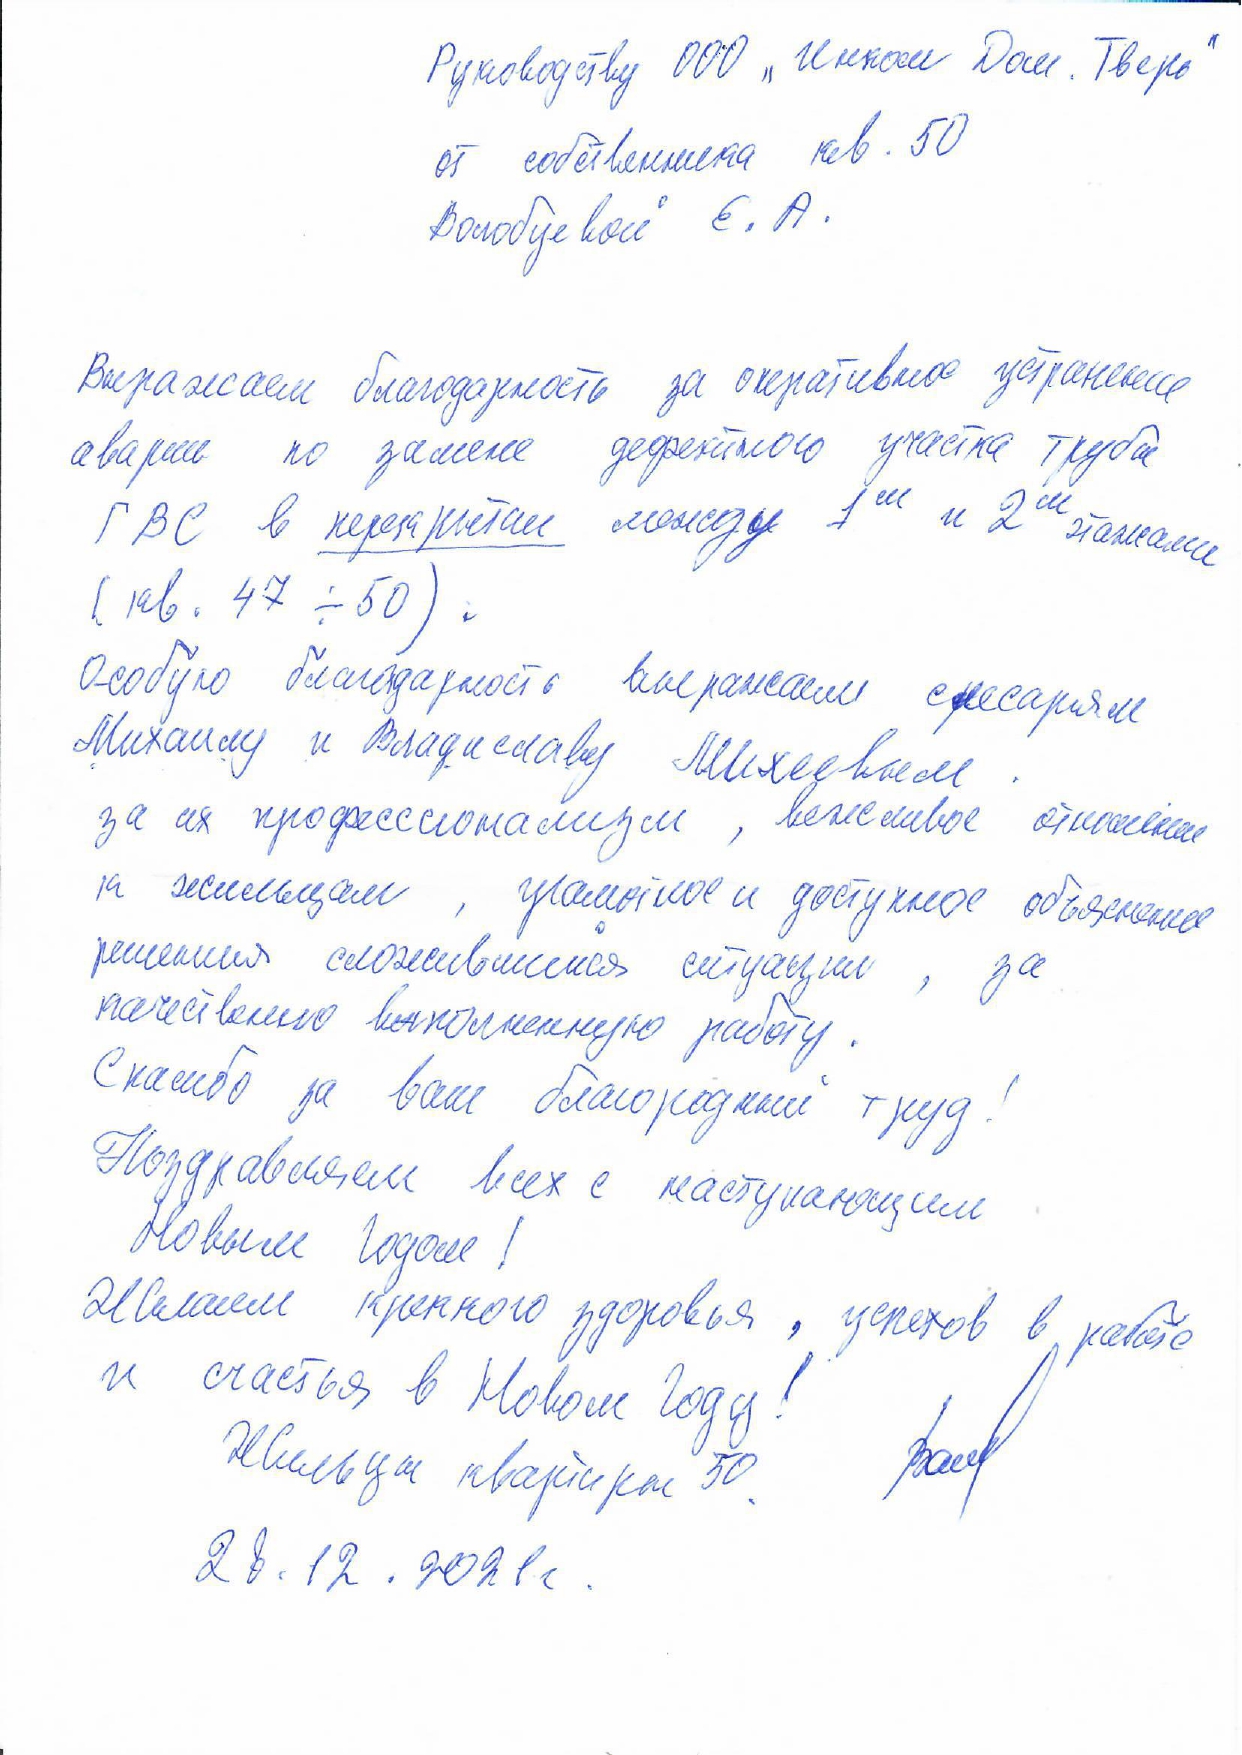 Руководству ООО „Инком Дом. Тверь"
от собственника кв. 50
Волобуевой Е. А.
Выражаем благодарность за оперативное устранение
аварии по замене дефектного участка трубы
ГВС в перекрытии между 1м и 2м этажами
(кв. 47 ÷ 50).
Особую благодарность выражаем слесарям
Михаилу и Владиславу Михеевым.
за их профессионализм, вежливое отношение
к жильцам, грамотное и доступное объяснение
решения сложившийся ситуации, за
качественно выполненную работу.
Спасибо за ваш благородный труд!
Поздравляем всех с наступающим
Новым Годом!
Желаем крепкого здоровья, успехов в работе
и счастья в Новом Году!
Жильцы квартиры 50.
28.12.2021г.